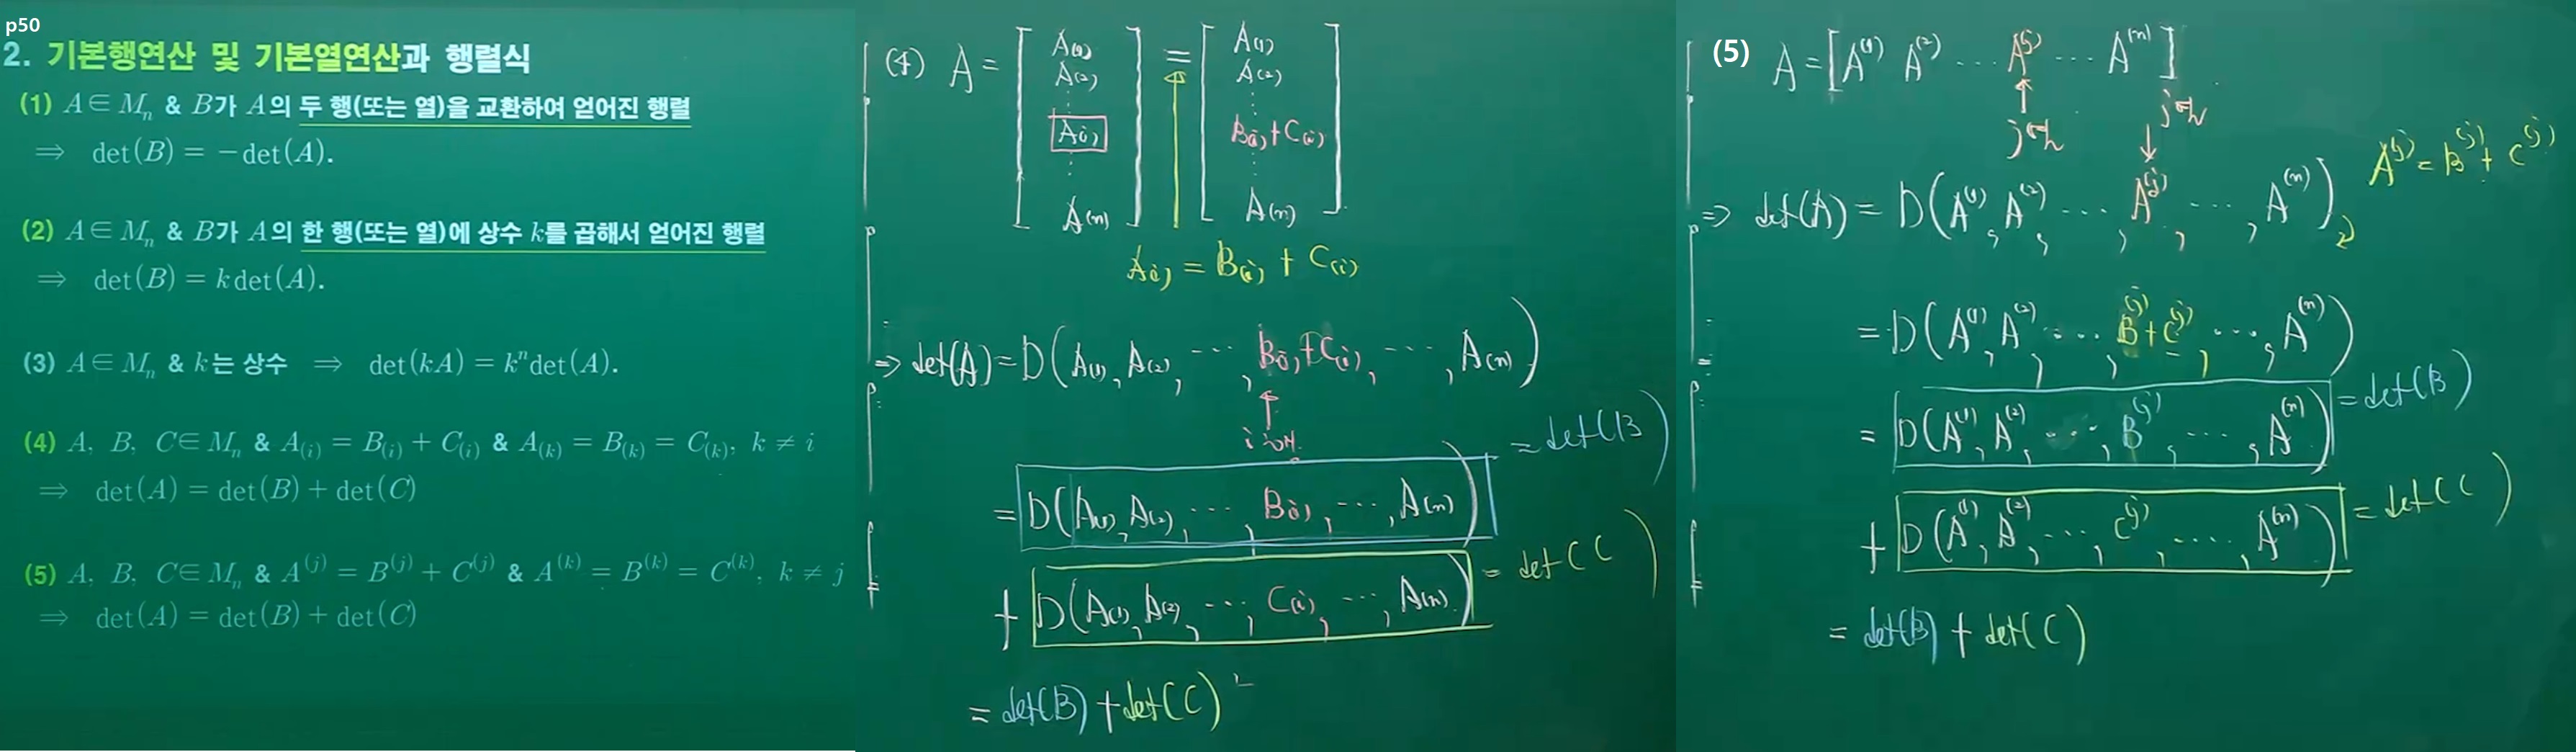 p50
2. 기본행연산 및 기본열연산과 행렬식
(1) A∈Mₙ & B가 A의 두 행(또는 열)을 교환하여 얻어진 행렬
⇒ det(B) = −det(A).
(2) A∈Mₙ & B가 A의 한 행(또는 열)에 상수 k를 곱해서 얻어진 행렬
⇒ det(B) = k det(A).
(3) A∈Mₙ & k는 상수 ⇒ det(kA) = kⁿdet(A).
(4) A, B, C∈Mₙ & A₍ᵢ₎ = B₍ᵢ₎ + C₍ᵢ₎ & A₍ₖ₎ = B₍ₖ₎ = C₍ₖ₎, k ≠ i
⇒ det(A) = det(B) + det(C)
(5) A, B, C∈Mₙ & A⁽ʲ⁾ = B⁽ʲ⁾ + C⁽ʲ⁾ & A⁽ᵏ⁾ = B⁽ᵏ⁾ = C⁽ᵏ⁾, k ≠ j
⇒ det(A) = det(B) + det(C)
(4) A = [A₍₁₎ A₍₂₎ ⋮ A₍ᵢ₎ ⋮ A₍ₙ₎] = [A₍₁₎ A₍₂₎ ⋮ B₍ᵢ₎+C₍ᵢ₎ ⋮ A₍ₙ₎]
A₍ᵢ₎ = B₍ᵢ₎ + C₍ᵢ₎
⇒ det(A) = D(A₍₁₎, A₍₂₎, ⋯, B₍ᵢ₎+C₍ᵢ₎, ⋯, A₍ₙ₎)
= D(A₍₁₎, A₍₂₎, ⋯, B₍ᵢ₎, ⋯, A₍ₙ₎) = det(B)
+ D(A₍₁₎, A₍₂₎, ⋯, C₍ᵢ₎, ⋯, A₍ₙ₎) = det(C)
= det(B) + det(C)
(5) A = [A⁽¹⁾ A⁽²⁾ ⋯ A⁽ʲ⁾ ⋯ A⁽ⁿ⁾]
↑
jth
jth
↓
A⁽ʲ⁾ = B⁽ʲ⁾ + C⁽ʲ⁾
⇒ det(A) = D(A⁽¹⁾, A⁽²⁾, ⋯, A⁽ʲ⁾, ⋯, A⁽ⁿ⁾)
= D(A⁽¹⁾, A⁽²⁾, ⋯, B⁽ʲ⁾+C⁽ʲ⁾, ⋯, A⁽ⁿ⁾)
= D(A⁽¹⁾, A⁽²⁾, ⋯, B⁽ʲ⁾, ⋯, A⁽ⁿ⁾) = det(B)
+ D(A⁽¹⁾, A⁽²⁾, ⋯, C⁽ʲ⁾, ⋯, A⁽ⁿ⁾) = det(C)
= det(B) + det(C)